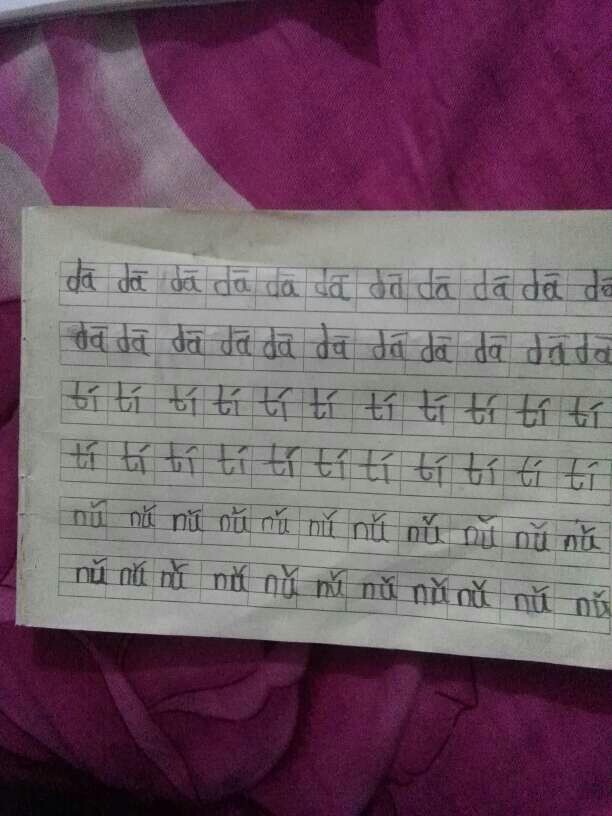 dā dā dā dā dā dā dā dā dā dā dā
dā dā dā dā dā dā dā dā dā dā dā
tí tí tí tí tí tí tí tí tí tí tí
tí tí tí tí tí tí tí tí tí tí tí
nǔ nǔ nǔ nǔ nǔ nǔ nǔ nǔ nǔ nǔ nǔ
nǔ nǔ nǔ nǔ nǔ nǔ nǔ nǔ nǔ nǔ nǔ